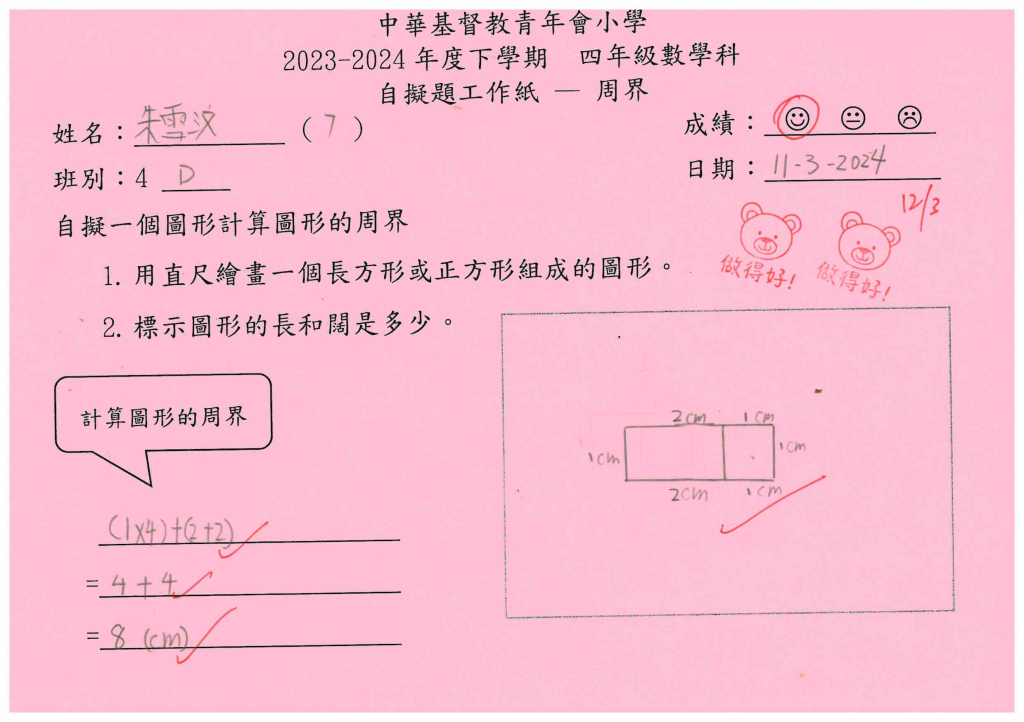 中華基督教青年會小學
2023-2024 年度下學期 四年級數學科
自擬題工作紙 — 周界
姓名：朱雪汶 ( 7 )
成績：
班別：4 D
日期：11-3-2024
12/3
自擬一個圖形計算圖形的周界
做得好! 做得好!
1. 用直尺繪畫一個長方形或正方形組成的圖形。
2. 標示圖形的長和闊是多少。
計算圖形的周界
2cm 1cm
1cm 1cm
2cm 1cm
(1x4)+(2+2)
= 4 + 4
= 8 (cm)